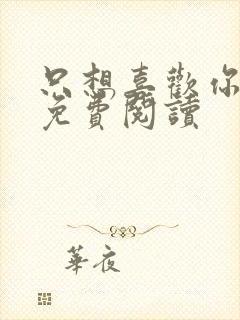 只想喜歡你
免費閱讀
華夜